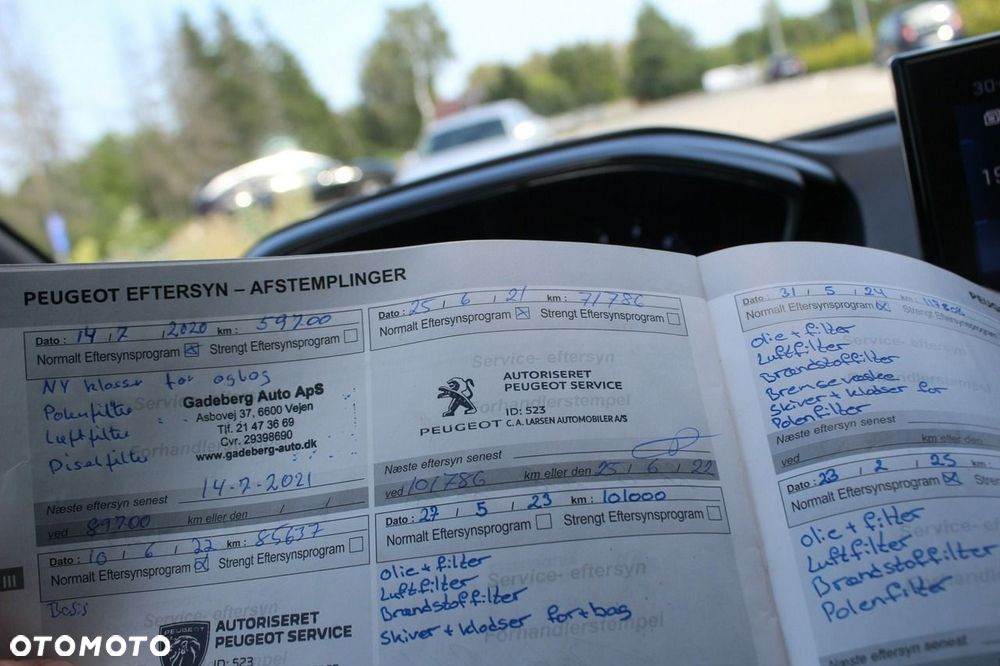 PEUGEOT EFTERSYN – AFSTEMPLINGER
Dato : 14 / 7 / 2020 km : 59700
Normalt Eftersynsprogram ☒ Strengt Eftersynsprogram ☐
NY klodser for og bag
Polenfilter
Luftfilter
Diselfilter
Gadeberg Auto ApS
Asbovej 37, 6600 Vejen
Tlf. 21 47 36 69
Cvr. 29398690
www.gadeberg-auto.dk
Næste eftersyn senest 14-7-2021
ved 89700 km eller den / /
Dato : 10 / 6 / 22 km : 85637
Normalt Eftersynsprogram ☒ Strengt Eftersynsprogram ☐
Basis
Service- eftersyn
PEUGEOT
AUTORISERET
PEUGEOT SERVICE
ID: 523
Dato : 25 / 6 / 21 km : 71786
Normalt Eftersynsprogram ☒ Strengt Eftersynsprogram ☐
Service- eftersyn
Forhandlerstempel
AUTORISERET
PEUGEOT SERVICE
ID: 523
PEUGEOT C. A. LARSEN AUTOMOBILER A/S
Næste eftersyn senest
ved 101786 km eller den 25 / 6 / 22
Dato : 27 / 5 / 23 km : 101000
Normalt Eftersynsprogram ☐ Strengt Eftersynsprogram ☐
Olie + filter
Luftfilter
Brandstoffilter
Skiver + klodser for + bag
Service- eftersyn
Forhandlerstempel
Dato : 31 / 5 / 24 km : 117808
Normalt Eftersynsprogram ☒ Strengt
Olie + filter
Luftfilter
Brandstoffilter
Bremsevæske
Skiver + klodser for
Polenfilter
Næste eftersyn senest
ved km eller den
Dato : 23 / 2 / 25 km :
Normalt Eftersynsprogram ☒
Olie + filter
Luftfilter
Brandstoffilter
Polenfilter
Næste eftersyn senest
III
OTOMOTO